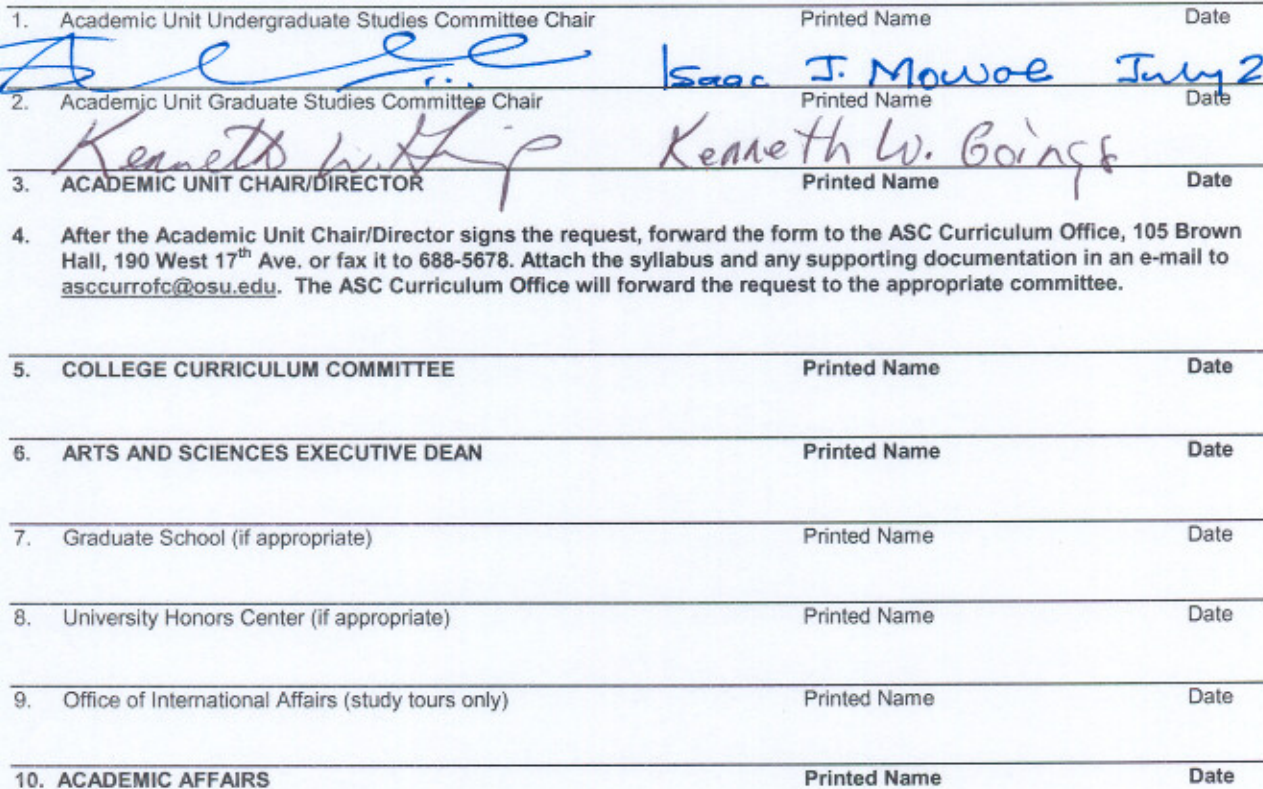 1. Academic Unit Undergraduate Studies Committee Chair Printed Name Date
Isaac J. Mowoe July 2
2. Academic Unit Graduate Studies Committee Chair Printed Name Date
Kenneth W. Goings Kenneth W. Goings
3. ACADEMIC UNIT CHAIR/DIRECTOR Printed Name Date
4. After the Academic Unit Chair/Director signs the request, forward the form to the ASC Curriculum Office, 105 Brown
Hall, 190 West 17th Ave. or fax it to 688-5678. Attach the syllabus and any supporting documentation in an e-mail to
asccurrofc@osu.edu. The ASC Curriculum Office will forward the request to the appropriate committee.
5. COLLEGE CURRICULUM COMMITTEE Printed Name Date
6. ARTS AND SCIENCES EXECUTIVE DEAN Printed Name Date
7. Graduate School (if appropriate) Printed Name Date
8. University Honors Center (if appropriate) Printed Name Date
9. Office of International Affairs (study tours only) Printed Name Date
10. ACADEMIC AFFAIRS Printed Name Date